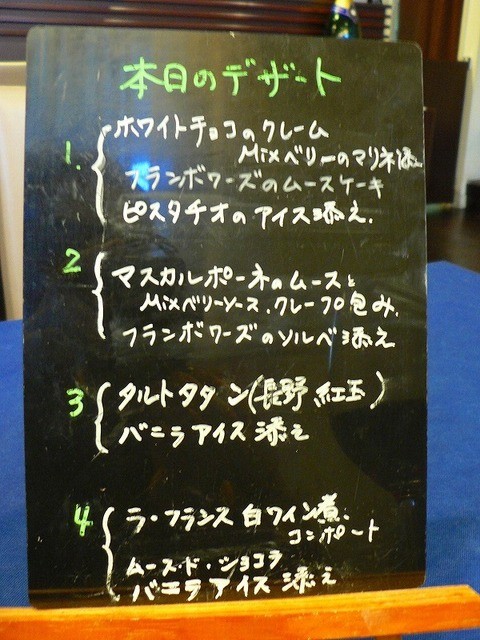 本日のデザート
1. ホワイトチョコのクレーム
Mixベリーのマリネ添え
フランボワーズのムースケーキ
ピスタチオのアイス添え.
2 マスカルポーネのムースと
Mixベリーソース.クレープ包み.
フランボワーズのソルベ添え
3 タルトタタン(長野 紅玉)
バニラアイス添え
4 ラ・フランス白ワイン煮.
コンポート
ムース・ド・ショコラ
バニラアイス添え